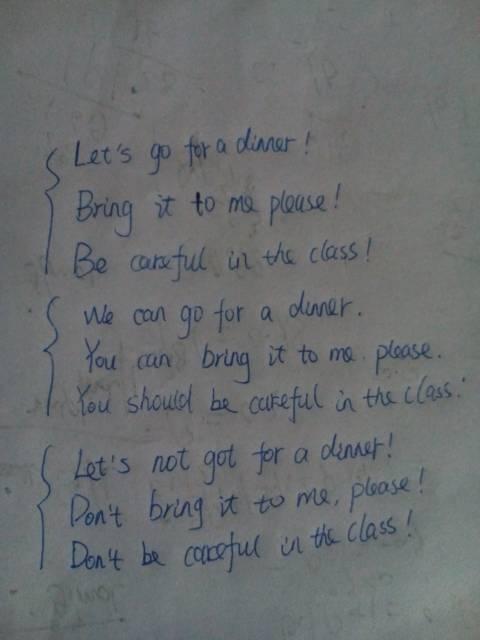 Let's go for a dinner!
Bring it to me please!
Be careful in the class!
We can go for a dinner.
You can bring it to me please.
You should be careful in the class.
Let's not got for a dinner!
Don't bring it to me, please!
Don't be careful in the class!